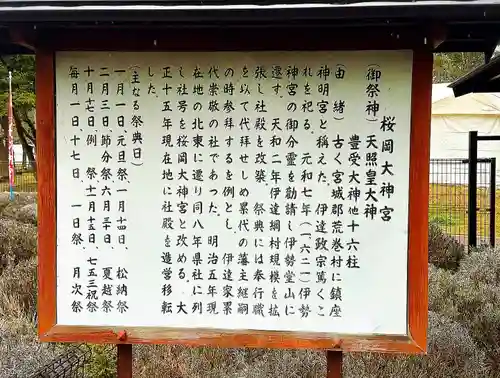 桜岡大神宮
（御祭神）天照皇大神
豊受大神他十六柱
（由緒）古く宮城郡荒巻村に鎮座
神明宮と称えた。伊達政宗篤くこ
れを祀る。元和七年（一六二一）伊勢
神宮の御分霊を勧請し伊勢堂山に
遷す。天和二年伊達綱村規模を拡
張し社殿を改築。祭典には奉行職
を以て代拝せしめ累代の藩主継嗣
の時参拝するを例とし、伊達家累
代崇敬の社であった。明治五年現
在地の北東に遷り同八年県社に列
し社号を桜岡大神宮と改める。大
正十五年現在地に社殿を造営移転
した。
（主なる祭典日）
一月一日、元旦祭 一月十四日、松納祭
二月三日、節分祭 六月三十日、夏越祭
十月十七日、例祭 十一月十五日、七五三祝祭
毎月一日、十七日、一日祭、月次祭